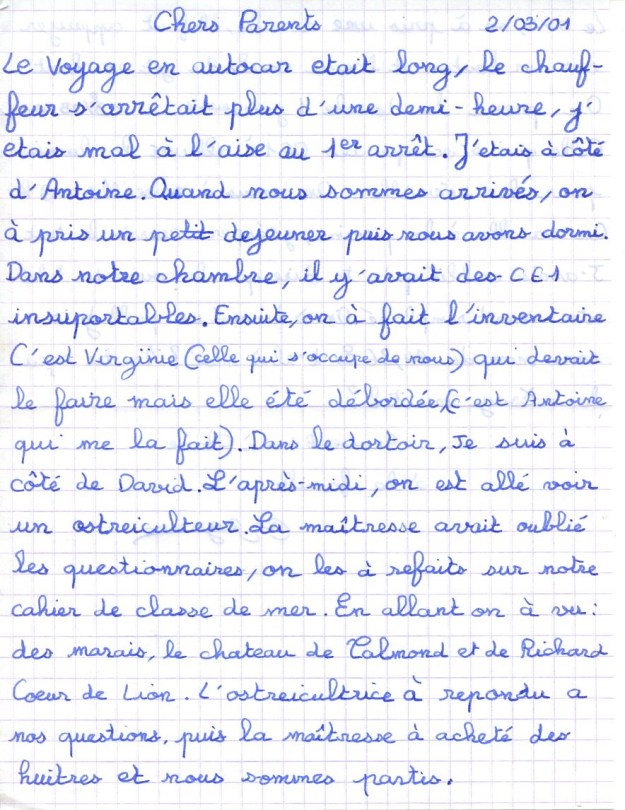 Chers Parents 2/03/01
Le Voyage en autocar etait long, le chauf-
feur s'arrêtait plus d'une demi-heure, j'
etais mal à l'aise au 1er arrêt. J'etais à côté
d'Antoine. Quand nous sommes arrivés, on
à pris un petit dejeuner puis nous avons dormi.
Dans notre chambre, il y'avait des CE1
insuportables. Ensuite, on à fait l'inventaire
C'est Virginie (celle qui s'occupe de nous) qui devait
le faire mais elle été débordée, (c'est Antoine
qui me la fait). Dans le dortoir, Je suis à
côté de David. L'après-midi, on est allé voir
un ostreiculteur. La maîtresse avait oublié
les questionnaires, on les à refaits sur notre
cahier de classe de mer. En allant on à vu :
des marais, le chateau de Talmond et de Richard
Coeur de Lion. L'ostreicultrice à repondu a
nos questions, puis la maîtresse à acheté des
huitres et nous sommes partis.